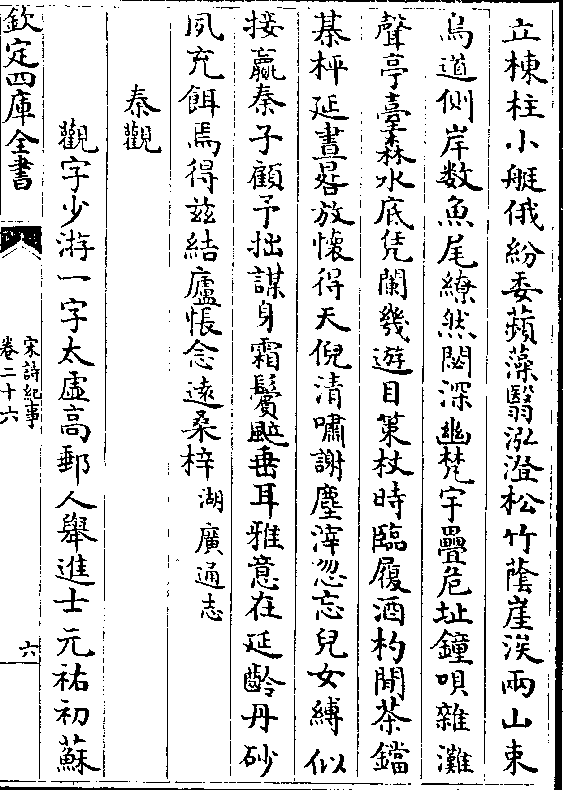 立棟柱小艇俄紛委蘋藻翳泓澄松竹蔭崖涘兩山束
鳥道側岸数魚尾繚然閟深幽梵宇疊危址鐘唄雜灘
聲亭臺森水底凭闌幾遊目策杖時臨履酒杓間茶鐺
棊枰延晝晷放懷得天倪清嘯謝塵滓忽忘兒女縛似
接嬴秦子顧予拙謀身霜鬢颯垂耳雅意在延齡丹砂
夙充餌焉得兹結廬悵念遠桑梓湖廣通志
秦觀
觀字少游一字太虛高郵人舉進士元祐初蘇
欽定四庫全書
宋詩紀事
卷二十六
六